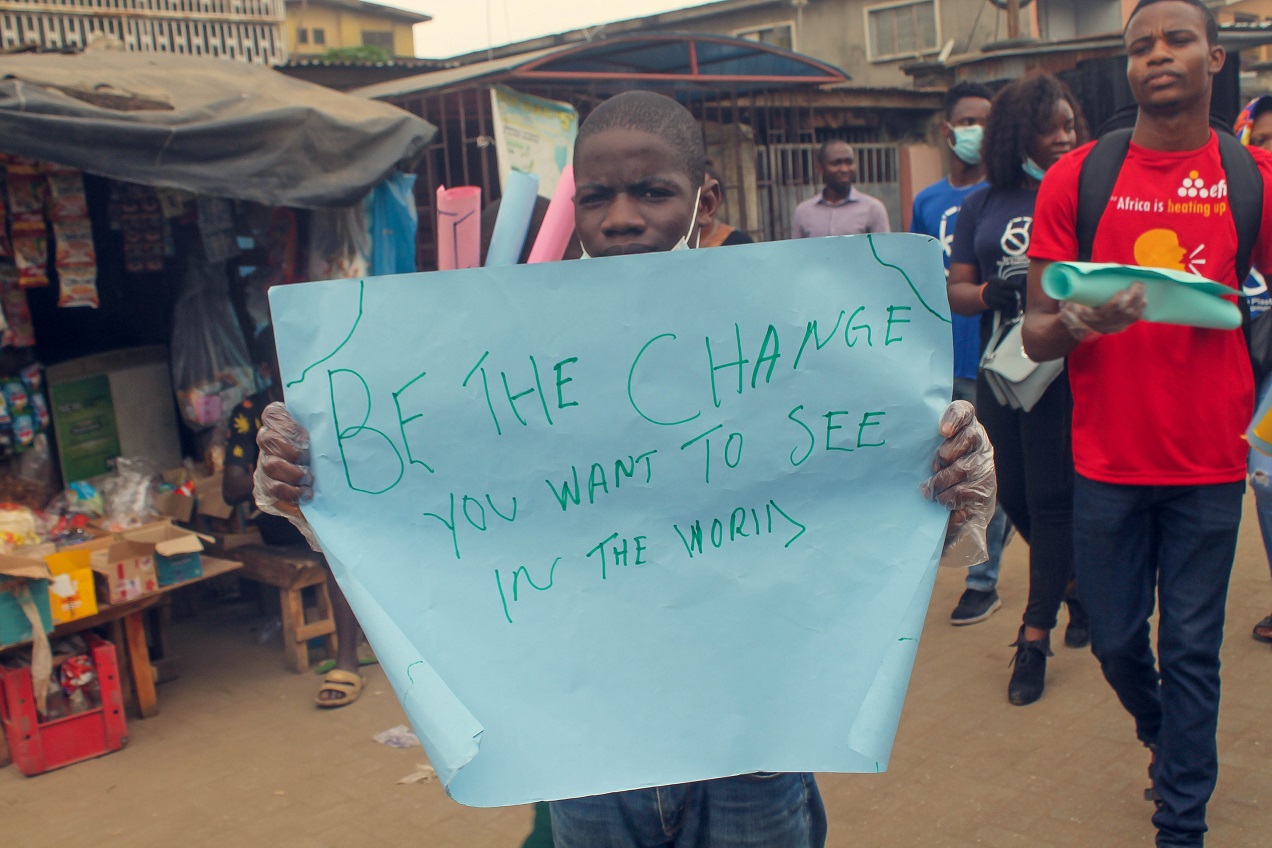 BE THE CHANGE
YOU WANT TO SEE
IN THE WORLD
efi
"Africa is heating up